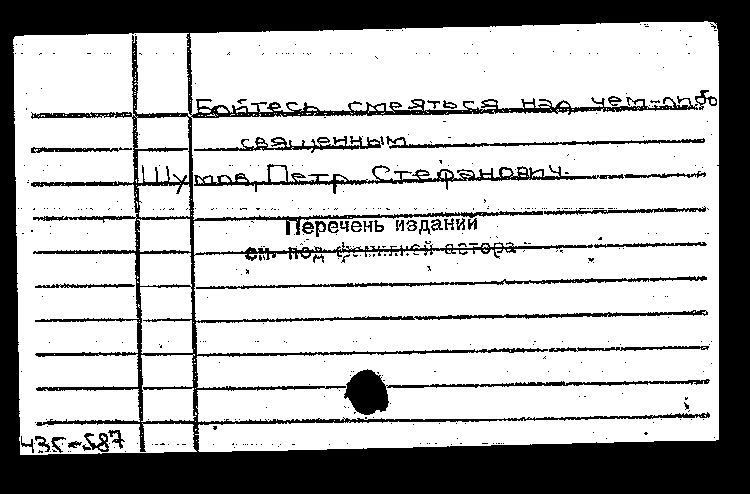 Бойтесь смеяться над чем-либо
священным
Шумов, Петр Стефанович.
Перечень изданий
см. под фамилией автора
435-587